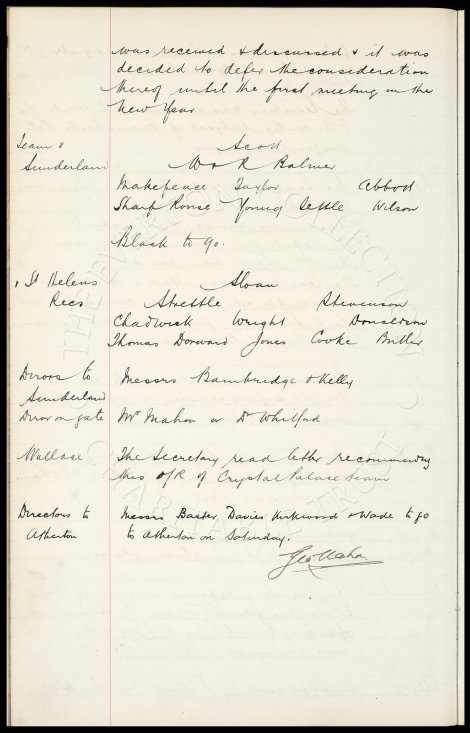 was received & discussed & it was
decided to defer the consideration
thereof until the first meeting in the
New Year
Team v Scott
Sunderland W & R Balmer
Makepeace Taylor Abbott
Sharp Rouse Young Settle Wilson
Black to go.
v St Helens Sloan
Recs Strettle Stevenson
Chadwick Wright Donaldson
Thomas Dorward Jones Cooke Butler
Dirors to Messrs Bainbridge & Kelly
Sunderland
Diror on gate Mr Mahon or Dr Whitford
Wallace The Secretary read letter recommending
this O/R of Crystal Palace team
Directors to Messrs Baxter Davies Kirkwood & Wade to go
Atherton to Atherton on Saturday.
Geo Mahon
THE EVERTON COLLECTION
CHARITABLE TRUST